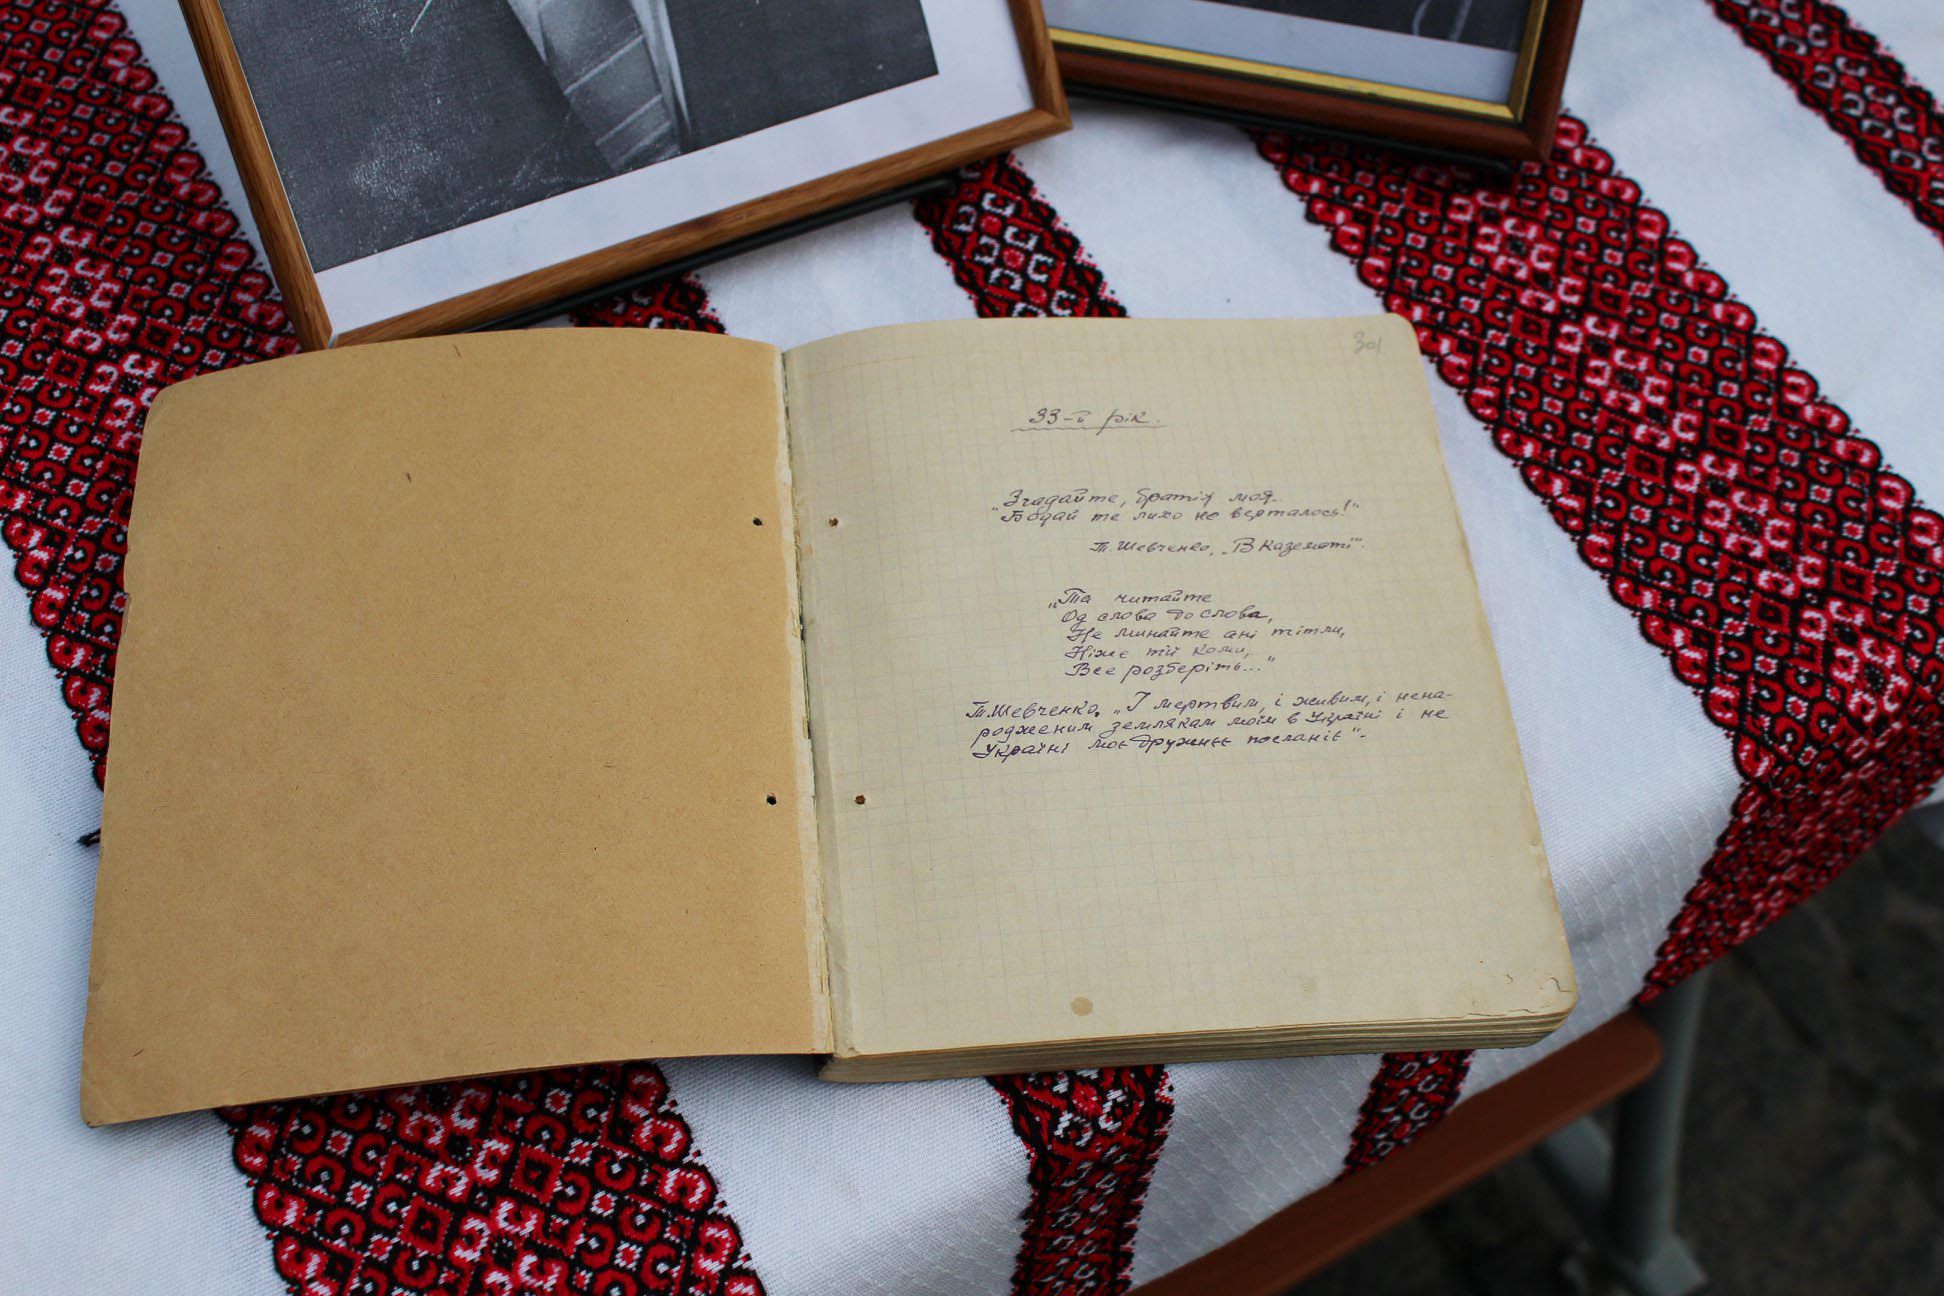 301
33-й рік.
Згадайте, братія моя..
"Бодай те лихо не верталось!"
Т. Шевченко, „В казематі".
„Та читайте
Од слова до слова,
Не минайте ані титли,
Ніже тії коми,
Все розберіть..."
Т. Шевченко, „І мертвим, і живим, і нена-
родженим землякам моїм в Україні і не
Україні моє дружнєє посланіє".